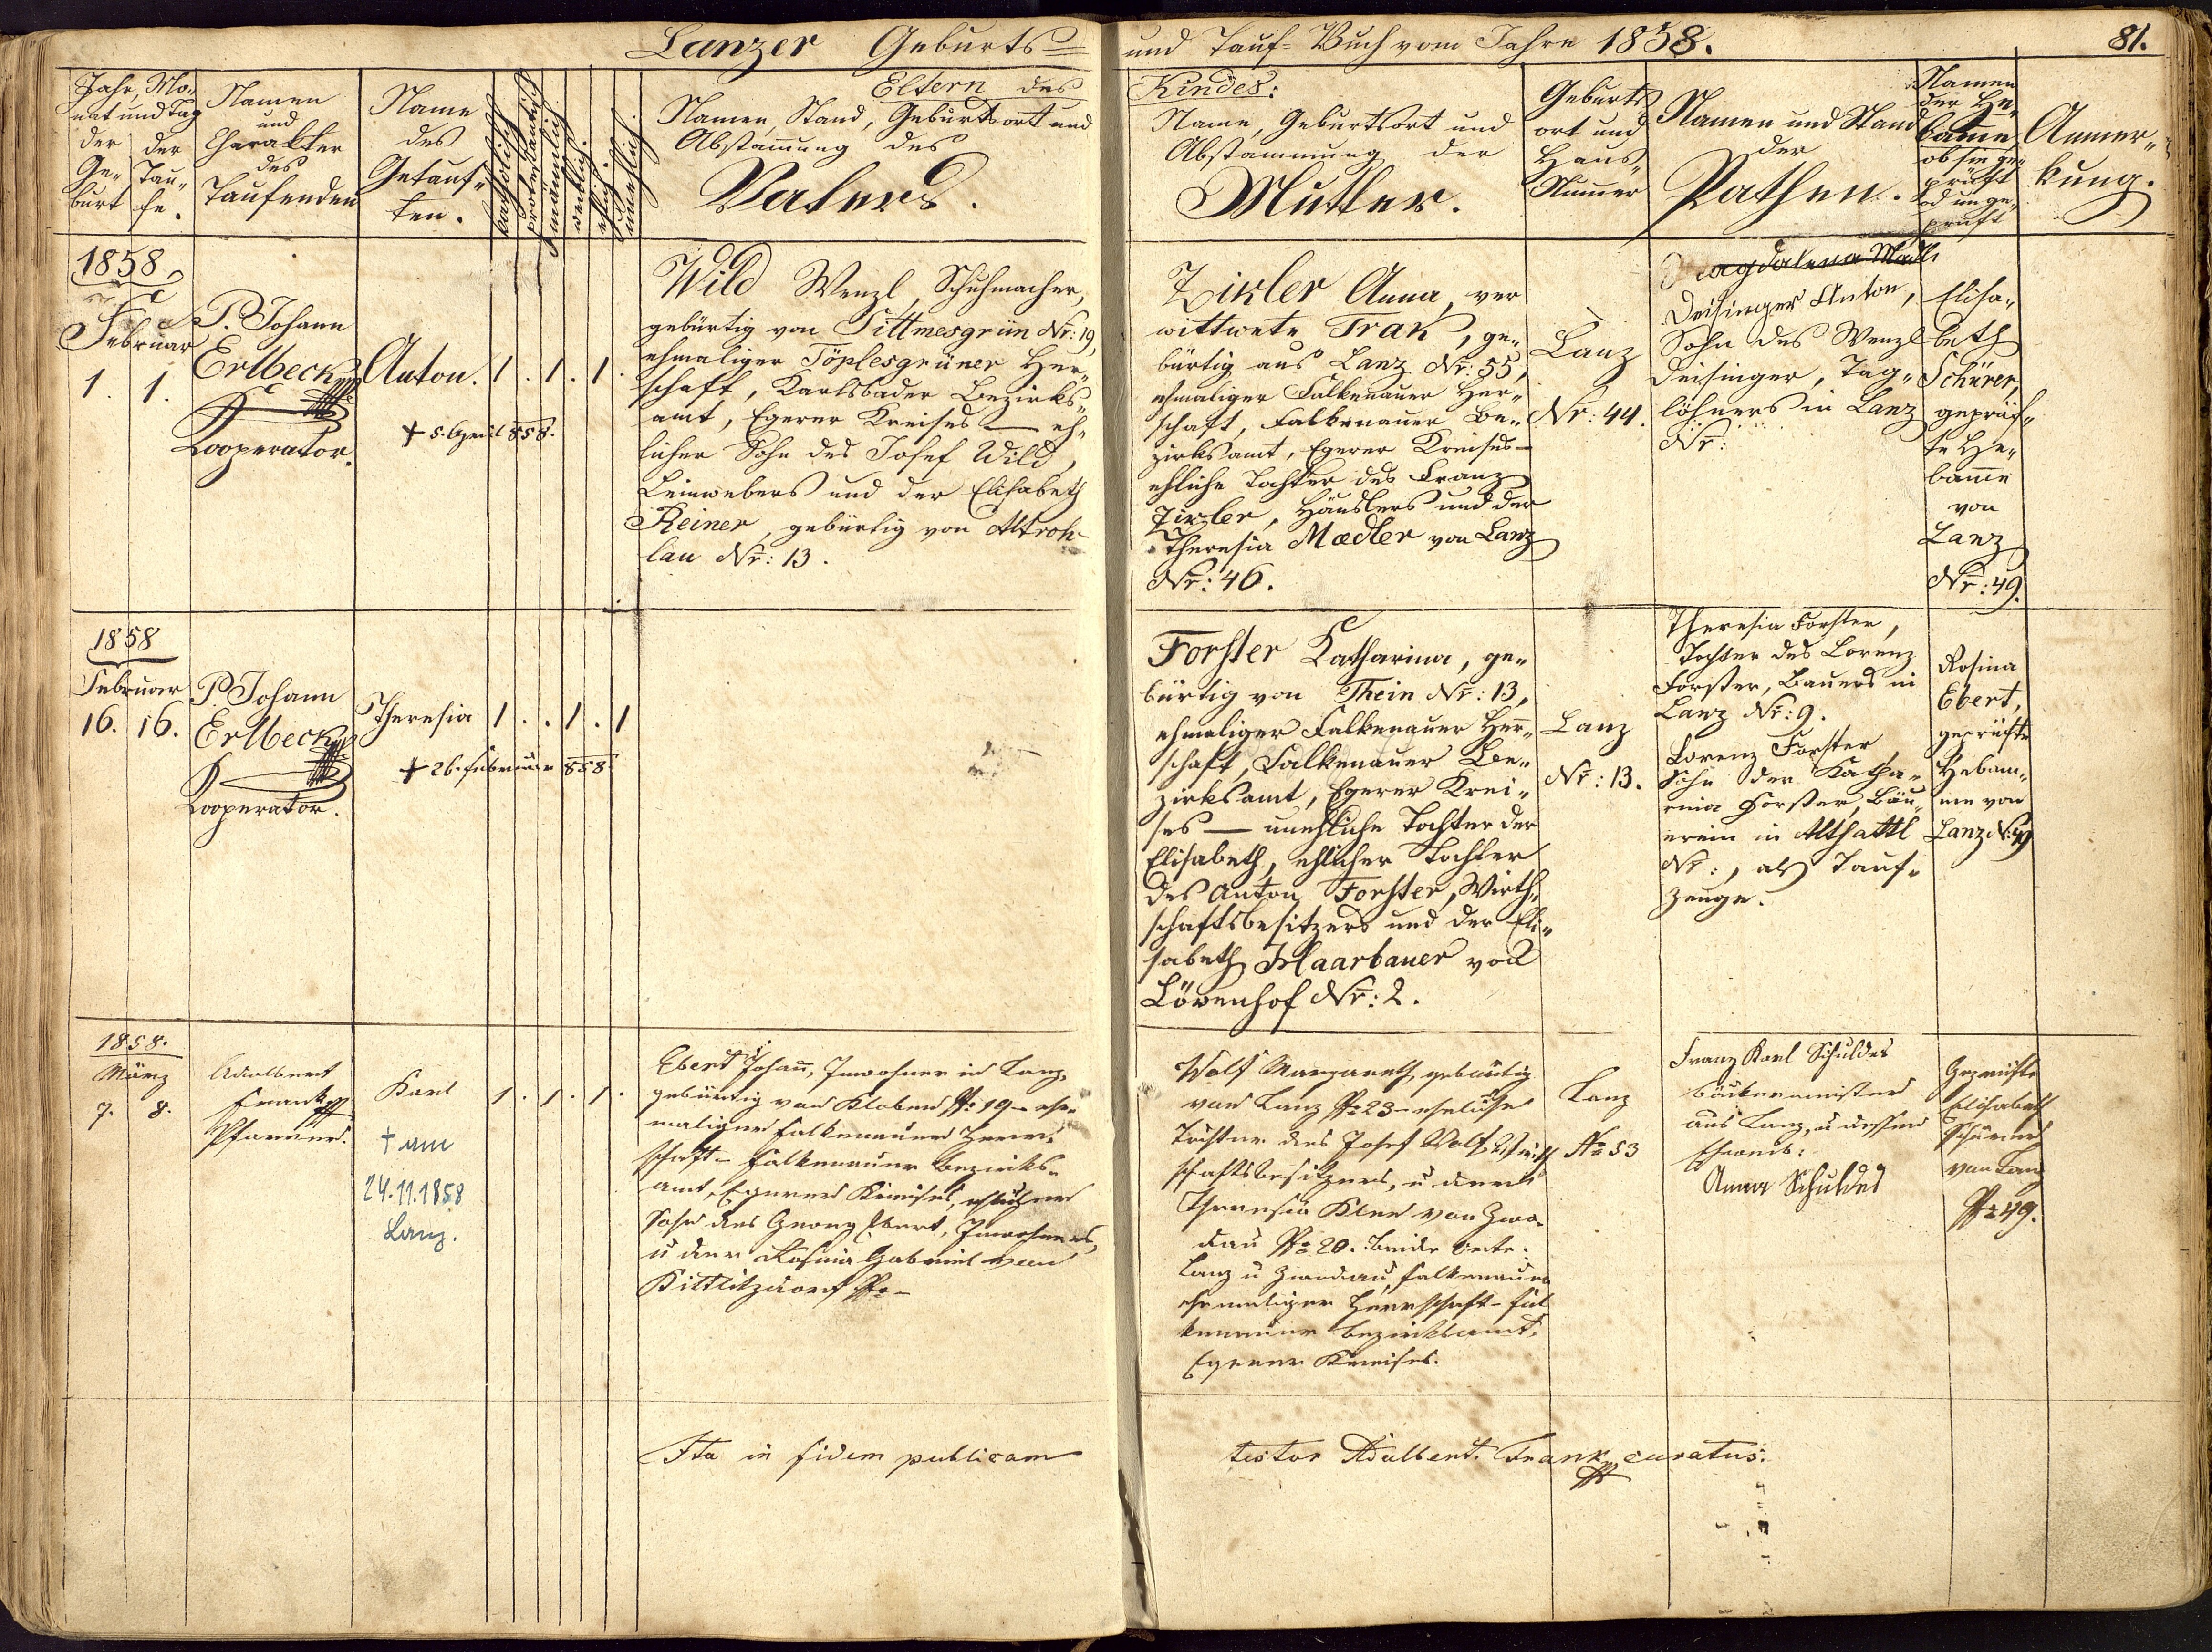 Lanzer Geburts- und Tauf-Buch vom Jahre 1858.
81.
Jahr, Mo-
nat und Tag
der Ge-
burt
der Tau-
fe.
Namen
und
Charakter
des
Taufenden
Name
des
Getauf-
ten.
katholisch
protestantisch
männlich
weiblich
ehlich
unehlich
Eltern des
Namen, Stand, Geburtsort und
Abstammung des
Vaters.
Kindes:
Name, Geburtsort und
Abstammung der
Mutter.
Geburts
ort und
Haus-
Numer
Namen und Stand
der
Pathen.
Namen
der He-
bame
ob sie ge-
prüft
od unge-
prüft
Anmer-
kung.
1858
Februar
1. 1.
P. Johann
Erlbeck
Cooperator.
Anton.
† 5. April 858.
1 . 1 . 1 .
Wild Wenzl, Schuhmacher,
gebürtig von Pittmesgrün Nr: 19,
ehmaliger Töplesgrüner Her-
schaft, Karlsbader Bezirks-
amt, Egerer Kreises — eh-
licher Sohn des Josef Wild,
Leinwebers und der Elisabeth
Reiner, gebürtig von Altroh-
lau Nr: 13.
Zixler Anna, ver
wittwete Trak, ge-
bürtig aus Lanz Nr: 55,
ehmaliger Falkenauer Her-
schaft, Falkenauer Be-
zirksamt, Egerer Kreises —
ehliche Tochter des Franz
Zixler, Häuslers und der
Theresia Maedler von Lanz
Nr: 46.
Lanz
Nr: 44.
Magdalena Mädl
Deisinger Anton,
Sohn des Wenzl
Deisinger, Tag-
löhners in Lanz
Nr:
Elisa-
beth
Schürer,
geprüf-
te He-
bame
von
Lanz
Nr: 49.
1858
Februar
16. 16.
P. Johann
Erlbeck
Cooperator.
Theresia
† 26. Februar 858.
1 . . 1 . 1
Forster Katharina, ge-
bürtig von Thein Nr: 13,
ehmaliger Falkenauer Herr-
schaft, Falkenauer Be-
zirksamt, Egerer Krei-
ses — unehliche Tochter der
Elisabeth, ehlicher Tochter
des Anton Forster, Wirth-
schaftsbesitzers und der Eli-
sabeth Haarbauer von
Lövenhof Nr: 2.
Lanz
Nr: 13.
Theresia Forster,
Tochter des Lorenz
Forster, Bauers in
Lanz Nr: 9.
Lorenz Forster,
Sohn der Katha-
rina Forster, Bäu-
erein in Altsattl
Nr:, als Tauf-
zeuge.
Rosina
Ebert,
geprüfte
Hebam-
me von
Lanz N: 49
1858.
März
7. 8.
Adalbert
Frank
Pfarrer.
Karl
† am
24.11.1858
Lanz.
1 . 1 . 1 .
Ebert Johann, Inwohner in Lanz,
gebürtig von Kloben No 19 – ehe-
maliger Falkenauer Herr-
schaft – Falkenauer Bezirks-
amt, Egerer Kreises, ehlicher
Sohn des Georg Ebert, Inwohners,
u der Rosina Gabriel von
Kittlitzdorf No –
Wolf Margareth, gebürtig
von Lanz No 23 – eheliche
Tochter des Josef Wolf Wirth
schaftsbesitzers, u der
Theresia Klee von Zwo-
dau No 20. beide Orte:
Lanz u Zwodau, Falkenauer
ehemaliger Herrschaft – Fal
kenauer Bezirksamt,
Egerer Kreises.
Lanz
No 53
Franz Karl Schuldes
Bäckermeister
aus Lanz, u dessen
Eheweib:
Anna Schuldes
Geprüfte
Elisabeth
Schürer
von Lanz
No 49.
Ita in fidem publicam testor Adalbert Frank curatus.